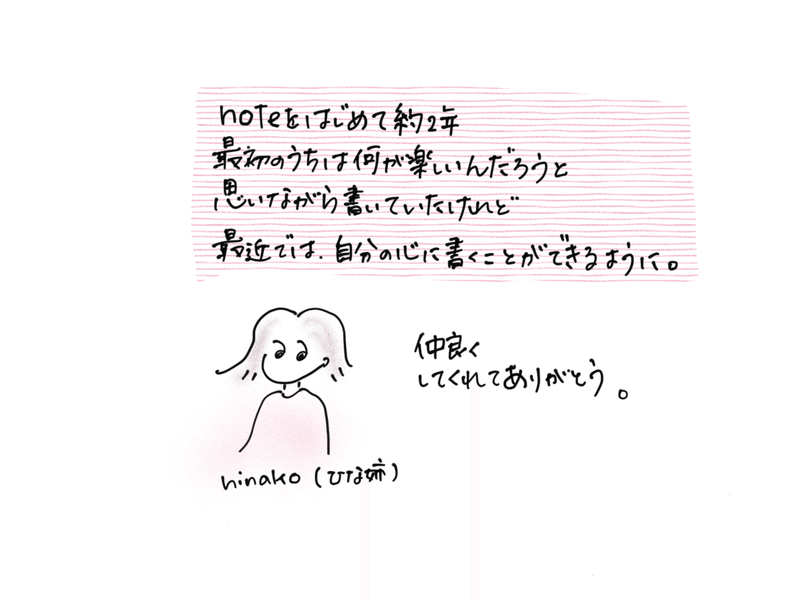 noteをはじめて約2年
最初のうちは何が楽しいんだろうと
思いながら書いていたけれど
最近では、自分の心に書くことができるように。
仲良く
してくれてありがとう。
hinako(ひな姉)